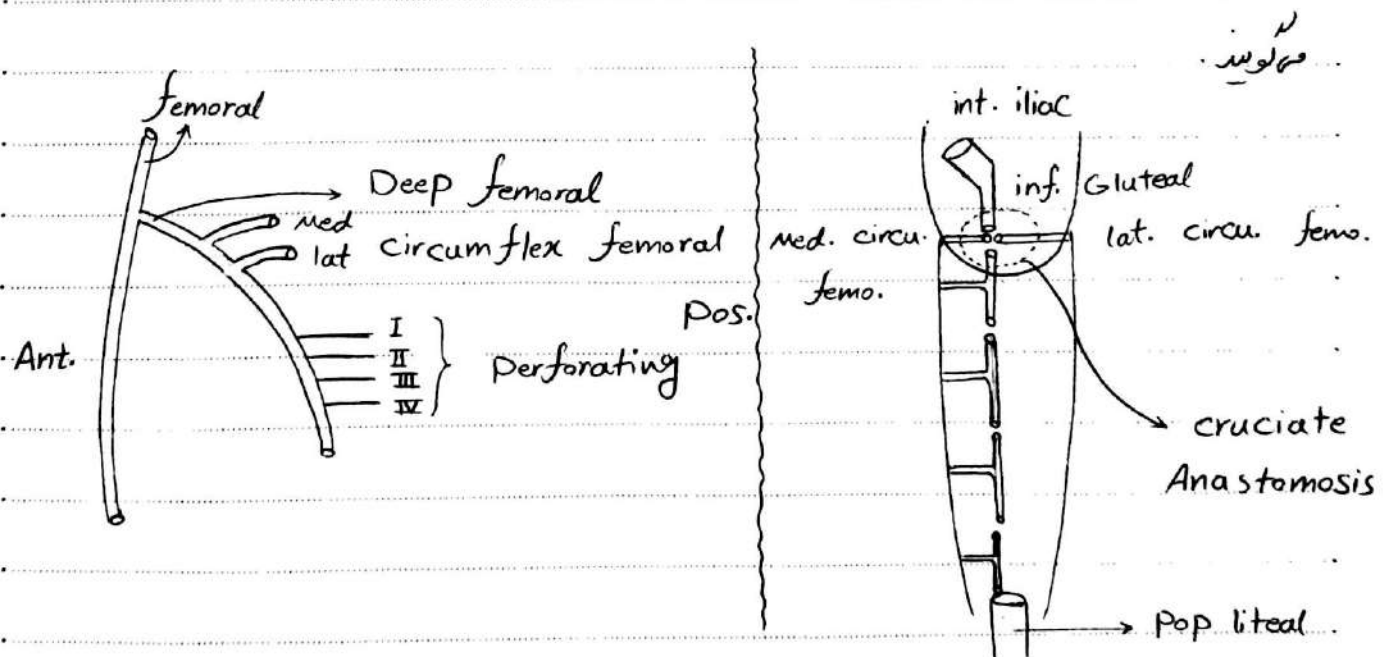 می‌گویند.
femoral
Deep femoral
Med
lat circumflex femoral
Ant.
I
II
III
IV
Perforating
Pos.
int. iliac
inf. Gluteal
Med. circu.
femo.
lat. circu. femo.
cruciate
Anastomosis
Pop liteal